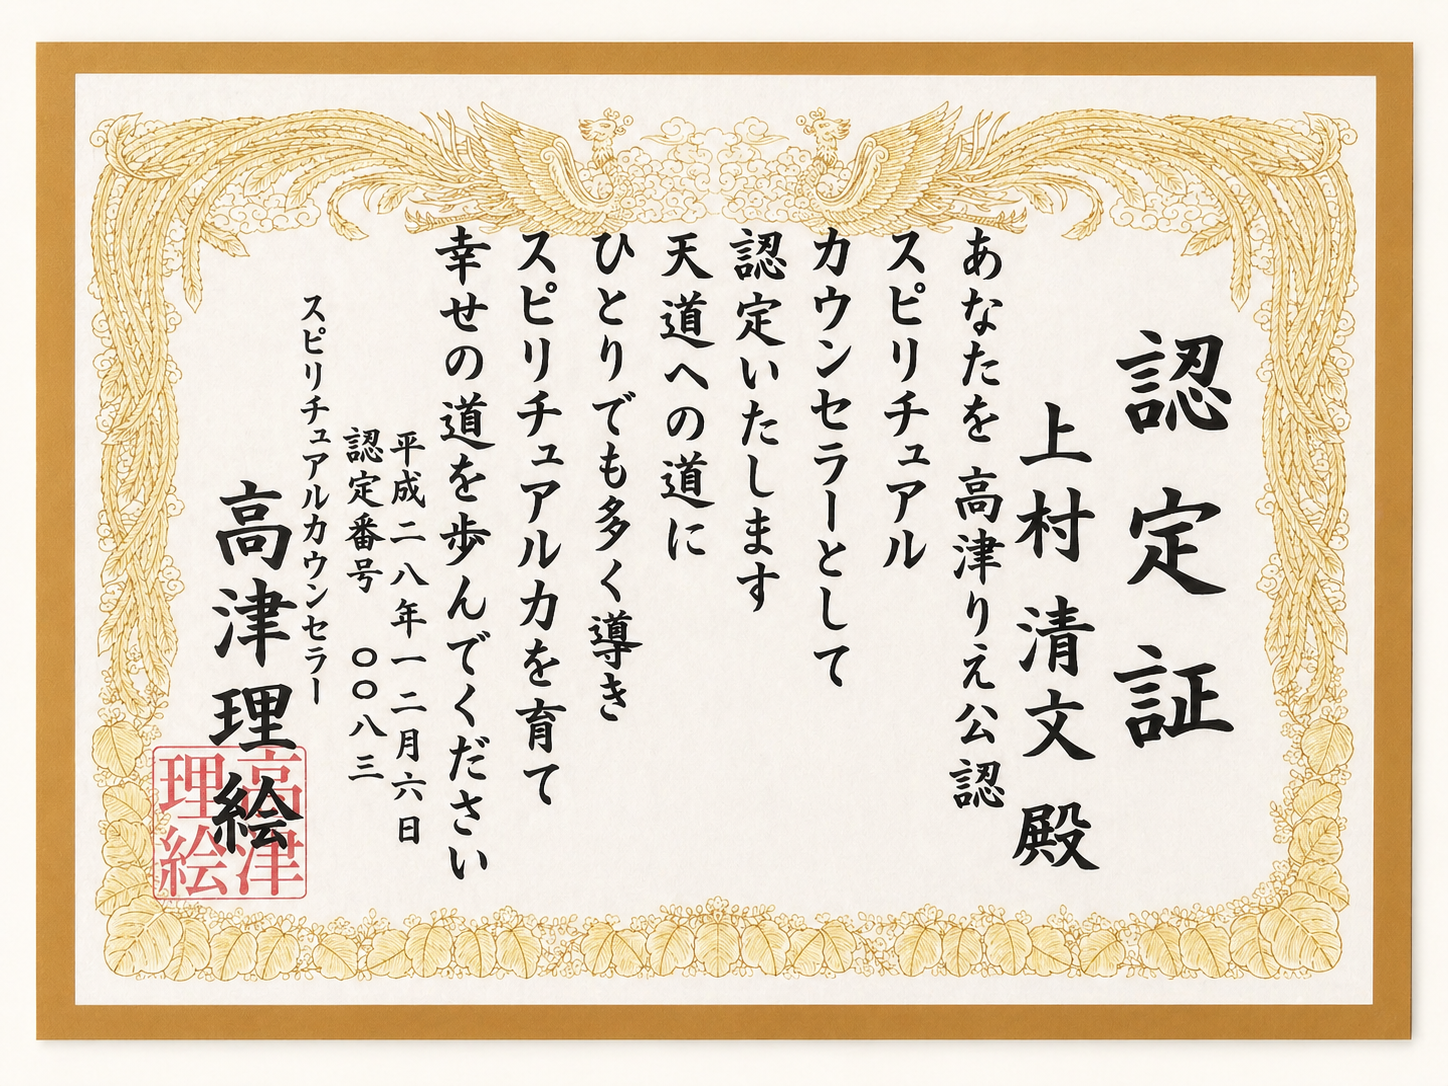 認定証
上村清文殿
あなたを 高津りえ公認
スピリチュアル
カウンセラーとして
認定いたします
天道への道に
ひとりでも多く導き
スピリチュアル力を育て
幸せの道を歩んでください
平成二八年一二月六日
認定番号 〇〇八三
スピリチュアルカウンセラー
高津理絵
高津
理絵